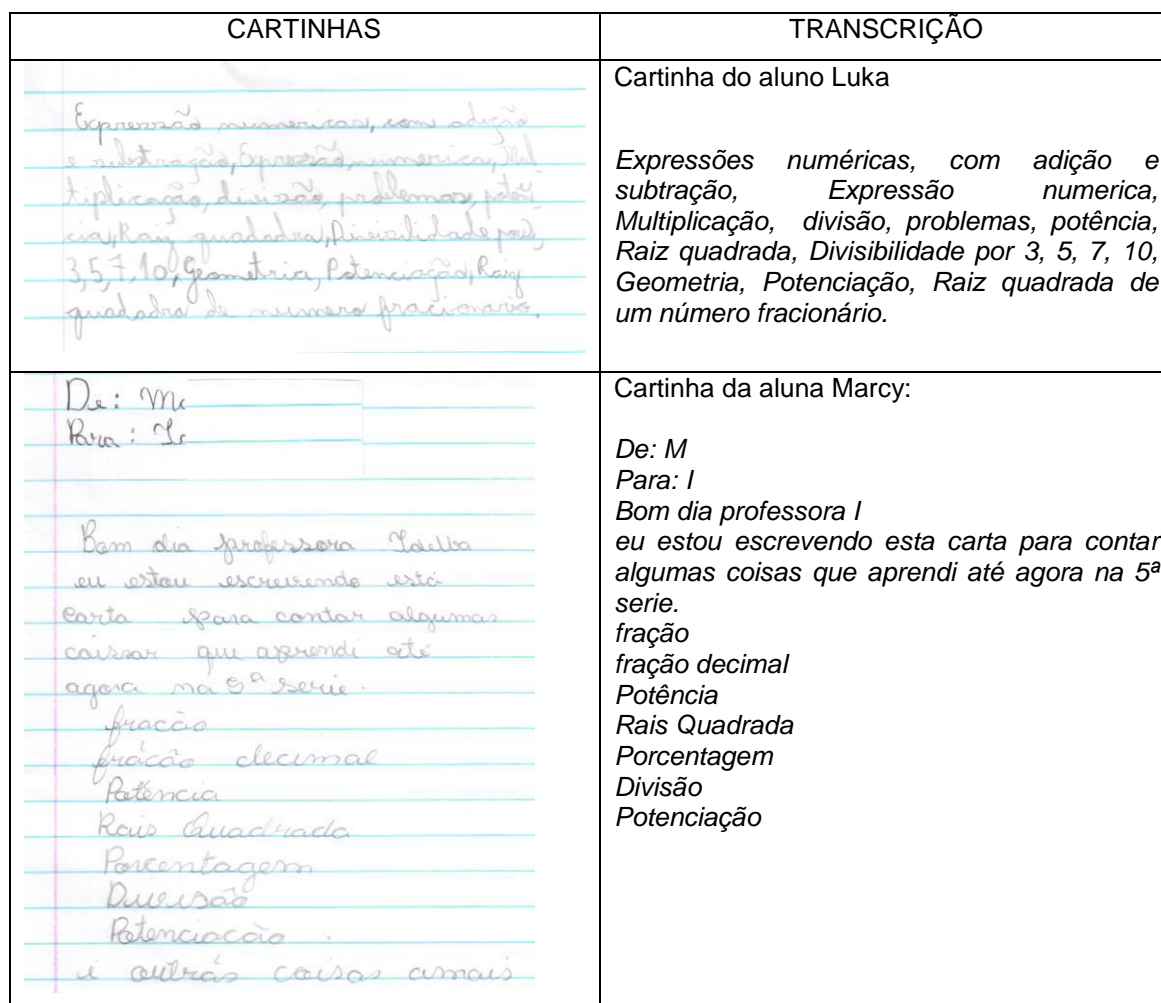 CARTINHAS
TRANSCRIÇÃO
Expressão numericas, com adição
e subtração, Expressão, numerica, Mul
tiplicação, divisão, problemas, potên
cia, Raiz quadadra, Divisilidade por
3, 5, 7, 10, Geometria, Potenciação, Raiz
quadadra de numero fracionario.
Cartinha do aluno Luka
Expressões numéricas, com adição e
subtração, Expressão numerica,
Multiplicação, divisão, problemas, potência,
Raiz quadrada, Divisibilidade por 3, 5, 7, 10,
Geometria, Potenciação, Raiz quadrada de
um número fracionário.
De: M
Para: I
Bom dia professora
eu estou escrevendo está
carta para contar algumas
coissas que aprendi até
agora na 5ª serie.
fracão
fracão decimal
Potência
Rais Quadrada
Porcentagem
Divisão
Potenciacão
i outras coisas amais
Cartinha da aluna Marcy:
De: M
Para: I
Bom dia professora I
eu estou escrevendo esta carta para contar
algumas coisas que aprendi até agora na 5ª
serie.
fração
fração decimal
Potência
Rais Quadrada
Porcentagem
Divisão
Potenciação